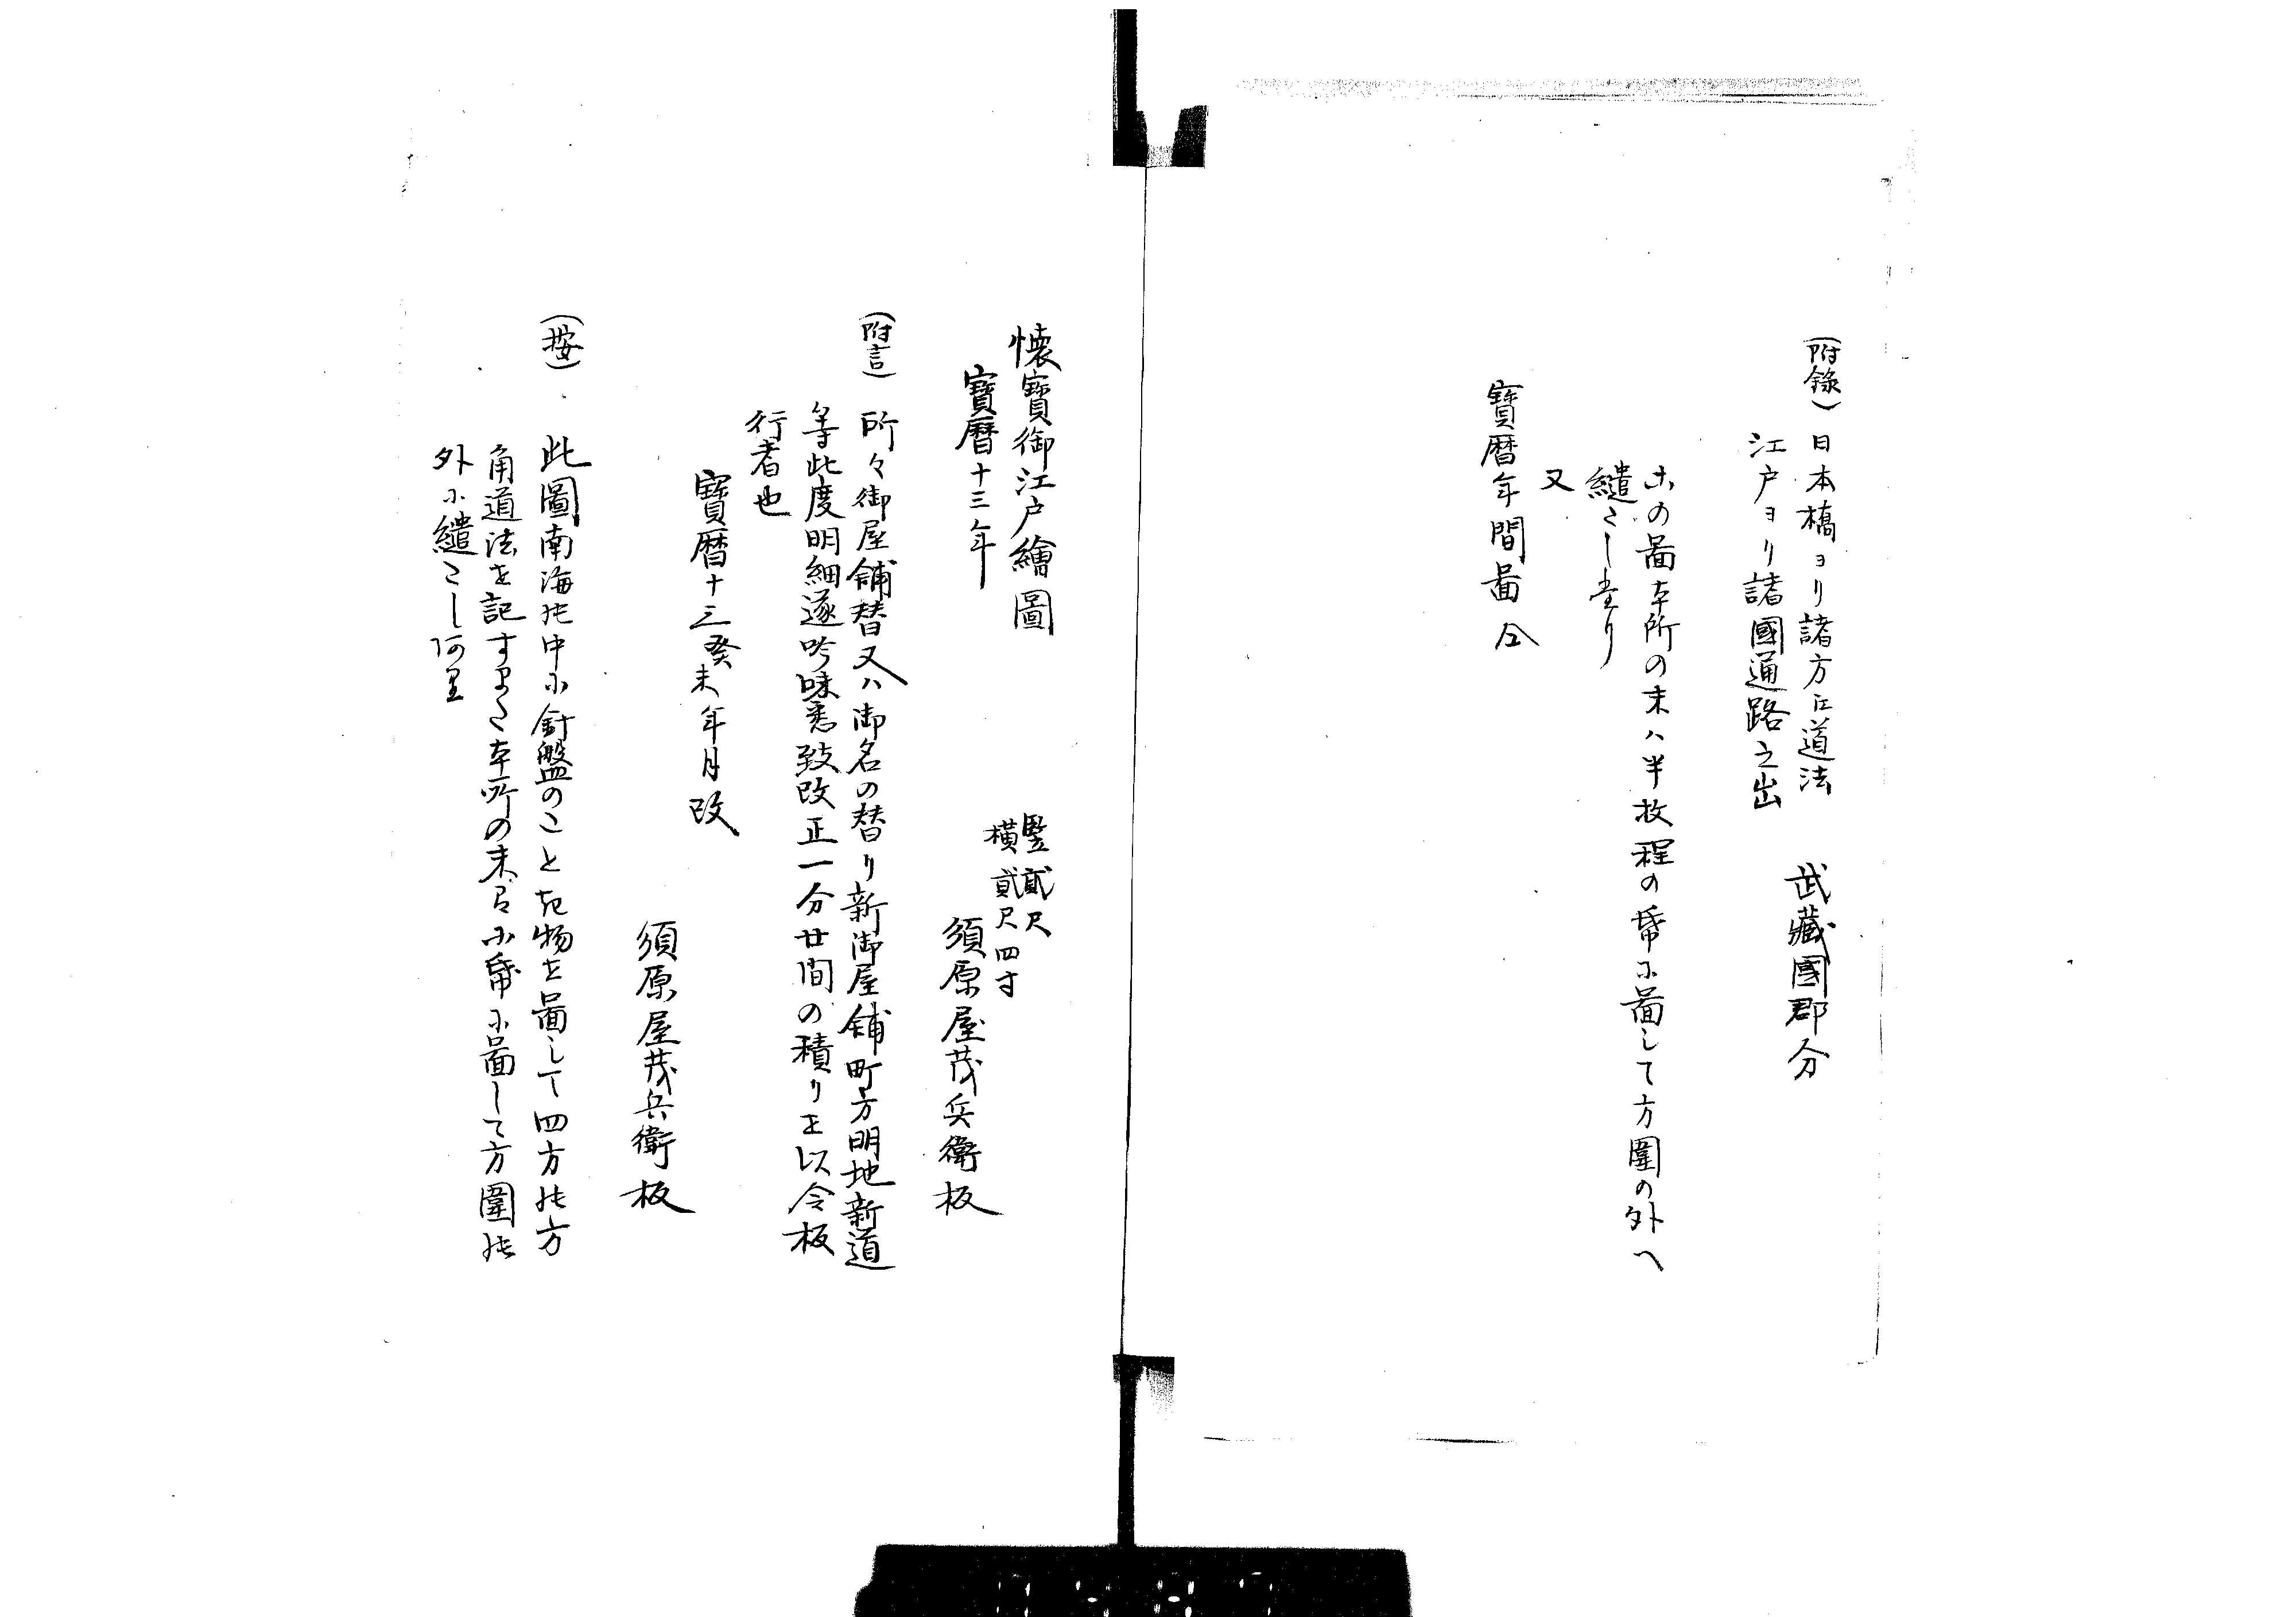 (附錄) 日本橋ヨリ諸方江道法 武藏國郡分
江戸ヨリ諸國通路之出
この啚本所の末ハ半枚程の帋に啚して方圍の外へ
繼さし
又
寶暦年間啚仝
懐寶御江戸繪圖 竪貳尺
橫貳尺四寸
寶暦十三年 須原屋茂兵衛板
(附言) 所々御屋鋪替又ハ御名の替り新御屋鋪町方明地新道
等此度明細遂吟味悉致改正一分廿間の積りを以令板
行者也
寶暦十三癸未年月改
須原屋茂兵衛板
(按) 此圖南海の中に針盤のことき物を啚して四方の方
角道法を記すまた本所の末に帋に啚して方圍の
外に繼さし阿里